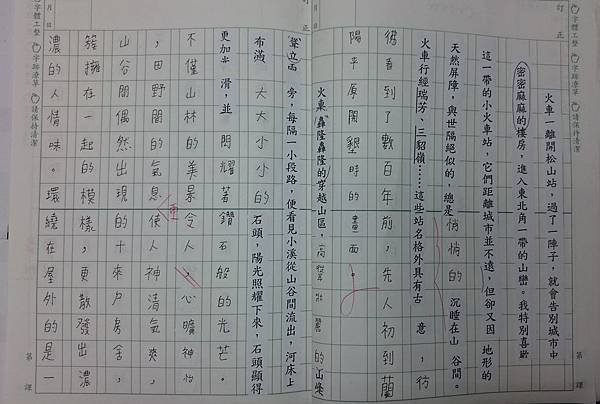 訂正
月 日
字體工整 字跡潦草 請保持清潔
火車一離開松山站，過了一陣子，就會告別城市中
密密麻麻的樓房，進入東北角一帶的山巒。我特別喜歡
這一帶的小火車站，它們距離城市並不遠，但卻又因 地形的
天然屏障，與世隔絕似的，總是悄悄的 沉睡在山 谷間。
火車行經瑞芳、三貂嶺……這些站名格外具有古 意，彷
彿看到了數百年前，先人初到蘭
陽平原開墾時的畫面
火車「轟隆轟隆」的穿越山區，高聳壯麗的山峰
聳立兩 旁，每隔一小段路，便看見小溪從山谷間流出，河床上
布滿 大大小小的 石頭，陽光照耀下來，石頭顯得
更加光 滑，並 閃耀著鑽石般的光芒。
不僅山林的美景令人心曠神怡
，田野間的氣息使人神清氣爽，
更
山谷間偶然出現的十來戶房舍，
簇擁在一起的模樣，更散發出濃
濃的人情味。環繞在屋外的是一
第 課
字體工整 字跡潦草 請保持清潔
訂正
月 日
第 課